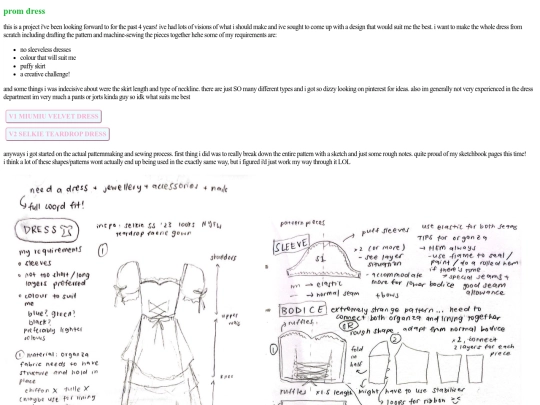 prom dress
this is a project i've been looking forward to for the past 4 years! ive had lots of visions of what i should make and ive sought to come up with a design that would suit me the best. i want to make the whole dress from
scratch including drafting the pattern and machine-sewing the pieces together hehe some of my requirements are:
no sleeveless dresses
colour that will suit me
puffy skirt
a creative challenge!
and some things i was indecisive about were the skirt length and type of neckline. there are just SO many different types and i got so dizzy looking on pinterest for ideas. also im generally not very experienced in the dress
department im very much a pants or jorts kinda guy so idk what suits me best
V1 MIUMIU VELVET DRESS
V2 SELKIE TEARDROP DRESS
anyways i got started on the actual patternmaking and sewing process. first thing i did was to really break down the entire pattern with a sketch and just some rough notes. quite proud of my sketchbook pages this time!
i think a lot of these shapes/patterns wont actually end up being used in the exactly same way, but i figured i'd just work my way through it LOL
need a dress + jewellery + accessories + nails
full word fit!
DRESS
inspo: selkie SS '23 looks NYFW
teardrop fabric gown
my requirements
sleeves
not too short/long
layers preferred
colour to suit
me
blue? green?
black?
preferably lighter
colours
① material: organza
fabric needs to have
structure and hold in
place
chiffon X tulle X
use for lining
①
shoulders
upper
knee
pattern pieces
SLEEVE
S1
puff sleeves
x2 (or more)
- see layer
situation
- accommodate
more for bodice
+ bows
elastic
normal seam
use elastic for both seams
TIPS for organza
HEM always
- use flame to seal
if there's time
special seams +
good seam
allowance
BODICE
extremely strange pattern... need to
connect both organza and lining together
ruffles.
rough shape
adapt from normal bodice
①
②
fold
in
half
x2, connect
2 layers for each
piece
ruffles x1.5 length
might have to use stabiliser
loops for ribbon